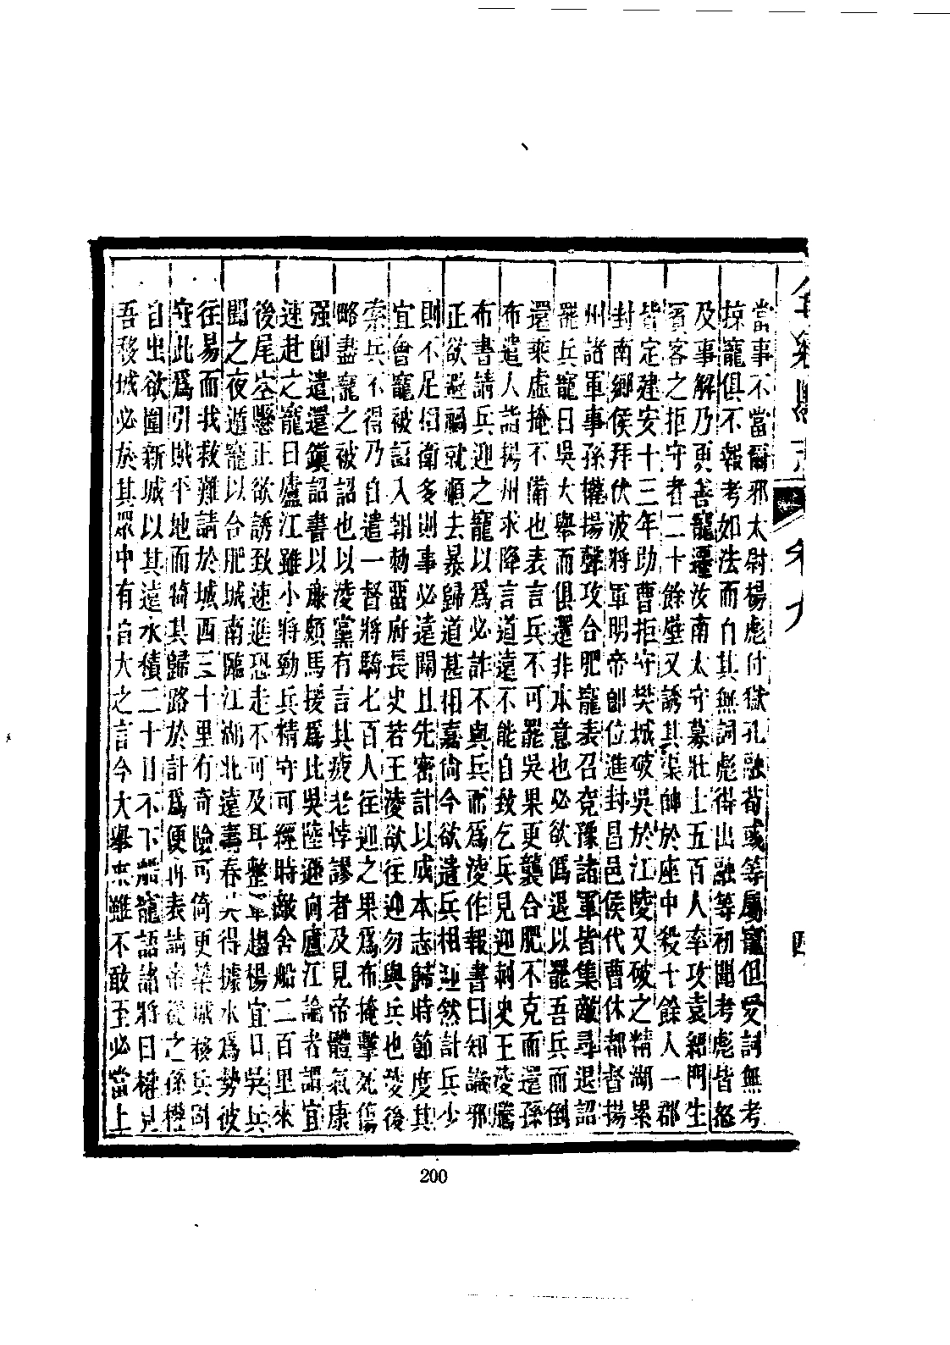 當事不當爾邪太尉楊彪付獄孔融荀彧等屬寵但受詞無考
掠寵俱不報考如法而白其無詞彪得出融等初聞考彪皆怒
及事解乃更善寵遷汝南太守募壯士五百人率攻袁紹門生
賓客之拒守者二十餘壁又誘其渠帥於座中殺十餘人一郡
皆定建安十三年助曹拒守樊城破吳於江陵又破之精湖累
封南鄉侯拜伏波將軍明帝卽位進封昌邑侯代曹休都督揚
州諸軍事孫權揚聲攻合肥寵表召兗豫諸軍皆集敵尋退詔
罷兵寵曰吳大舉而俱還非本意也必欲僞退以罷吾兵而倒
還乘虛掩不備也表言兵不可罷吳果更襲合肥不克而還孫
布遣人詣揚州求降言道遠不能自致乞兵見迎刺史王凌騰
布書請兵迎之寵以爲必詐不與兵而爲凌作報書曰知識邪
正欲避禍就順去暴歸道甚相嘉尙今欲遣兵相迎然計兵少
則不足相衛多則事必遠聞且先密計以成本志歸時節度其
宜會寵被詔入朝勅畱府長史若王淩欲往迎勿與兵也淩後
索兵不得乃自遣一督將騎七百人往迎之果爲布掩擊死傷
略盡寵之被詔也以淩黨有言其疲老悖謬者及見帝體氣康
强卽遣還鎭詔書以廉頗馬援爲比吳陸遜向廬江論者謂宜
速赴之寵曰廬江雖小將勁兵精守可經時敵舍船二百里來
後尾空懸正欲誘致速進恐走不可及耳整軍趨楊宜口吳兵
聞之夜遁寵以合肥城南臨江湖北遠壽春其得據水爲勢彼
往易而我救難請於城西三十里有奇險可倚更築城移兵劄
守此爲引賊平地而犄其歸路於計爲便再表請帝從之孫權
自出欲圍新城以其遠水積二十日不下船寵語諸將曰權見
吾移城必於其眾中有自大之言今大舉來雖不敢至必當上
卷九
四
200